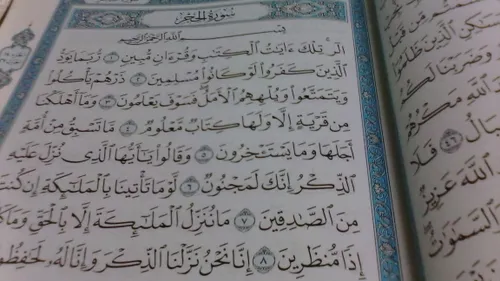 سُورَةُ الحِجْرِ
بِسْمِ اللَّهِ الرَّحْمَٰنِ الرَّحِيمِ
الٓر تِلْكَ ءَايَٰتُ ٱلْكِتَٰبِ وَقُرْءَانٍ مُّبِينٍ ١ رُّبَمَا يَوَدُّ
ٱلَّذِينَ كَفَرُوا۟ لَوْ كَانُوا۟ مُسْلِمِينَ ٢ ذَرْهُمْ يَأْكُلُوا۟
وَيَتَمَتَّعُوا۟ وَيُلْهِهِمُ ٱلْأَمَلُ فَسَوْفَ يَعْلَمُونَ ٣ وَمَآ أَهْلَكْنَا
مِن قَرْيَةٍ إِلَّا وَلَهَا كِتَابٌ مَّعْلُومٌ ٤ مَّا تَسْبِقُ مِنْ أُمَّةٍ
أَجَلَهَا وَمَا يَسْتَـْٔخِرُونَ ٥ وَقَالُوا۟ يَٰٓأَيُّهَا ٱلَّذِى نُزِّلَ عَلَيْهِ
ٱلذِّكْرُ إِنَّكَ لَمَجْنُونٌ ٦ لَّوْ مَا تَأْتِينَا بِٱلْمَلَٰٓئِكَةِ إِن كُنتَ
مِنَ ٱلصَّٰدِقِينَ ٧ مَا نُنَزِّلُ ٱلْمَلَٰٓئِكَةَ إِلَّا بِٱلْحَقِّ وَمَا
إِذًا مُّنظَرِينَ ٨ إِنَّا نَحْنُ نَزَّلْنَا ٱلذِّكْرَ وَإِنَّا لَهُۥ لَحَٰفِظُو
ٱلَّذِينَ ظَلَمُوٓا۟
وَضَرَبْنَا
ٱللَّهِ مَكْرُهُمْ
ٱلْ ٤٦ فَلَا
ٱللَّهَ عَزِيزٌ